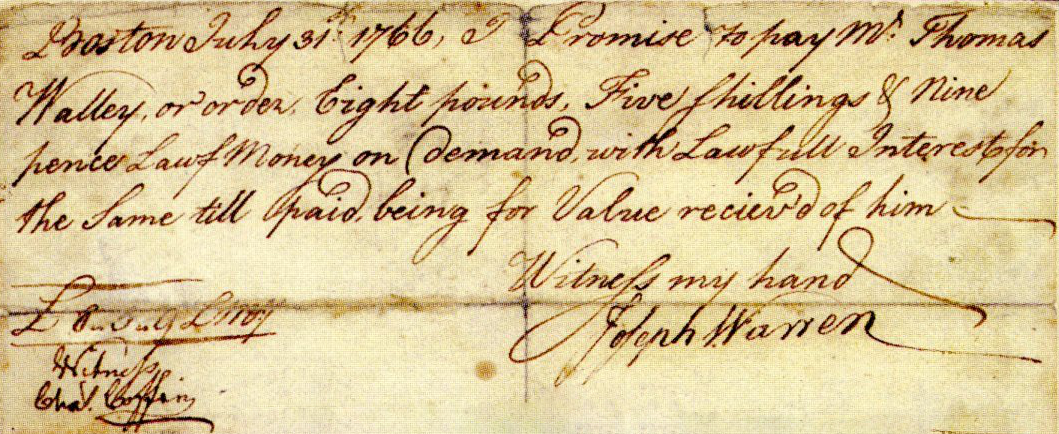 Boston July 31st. 1766, I Promise to pay Mr. Thomas
Walley, or order, Eight pounds, Five shillings & Nine
pence Lawf Money on demand, with Lawfull Interest for
the Same till paid, being for Value reciev'd of him
Witness my hand
Joseph Warren
Witness
Chas. Coffin